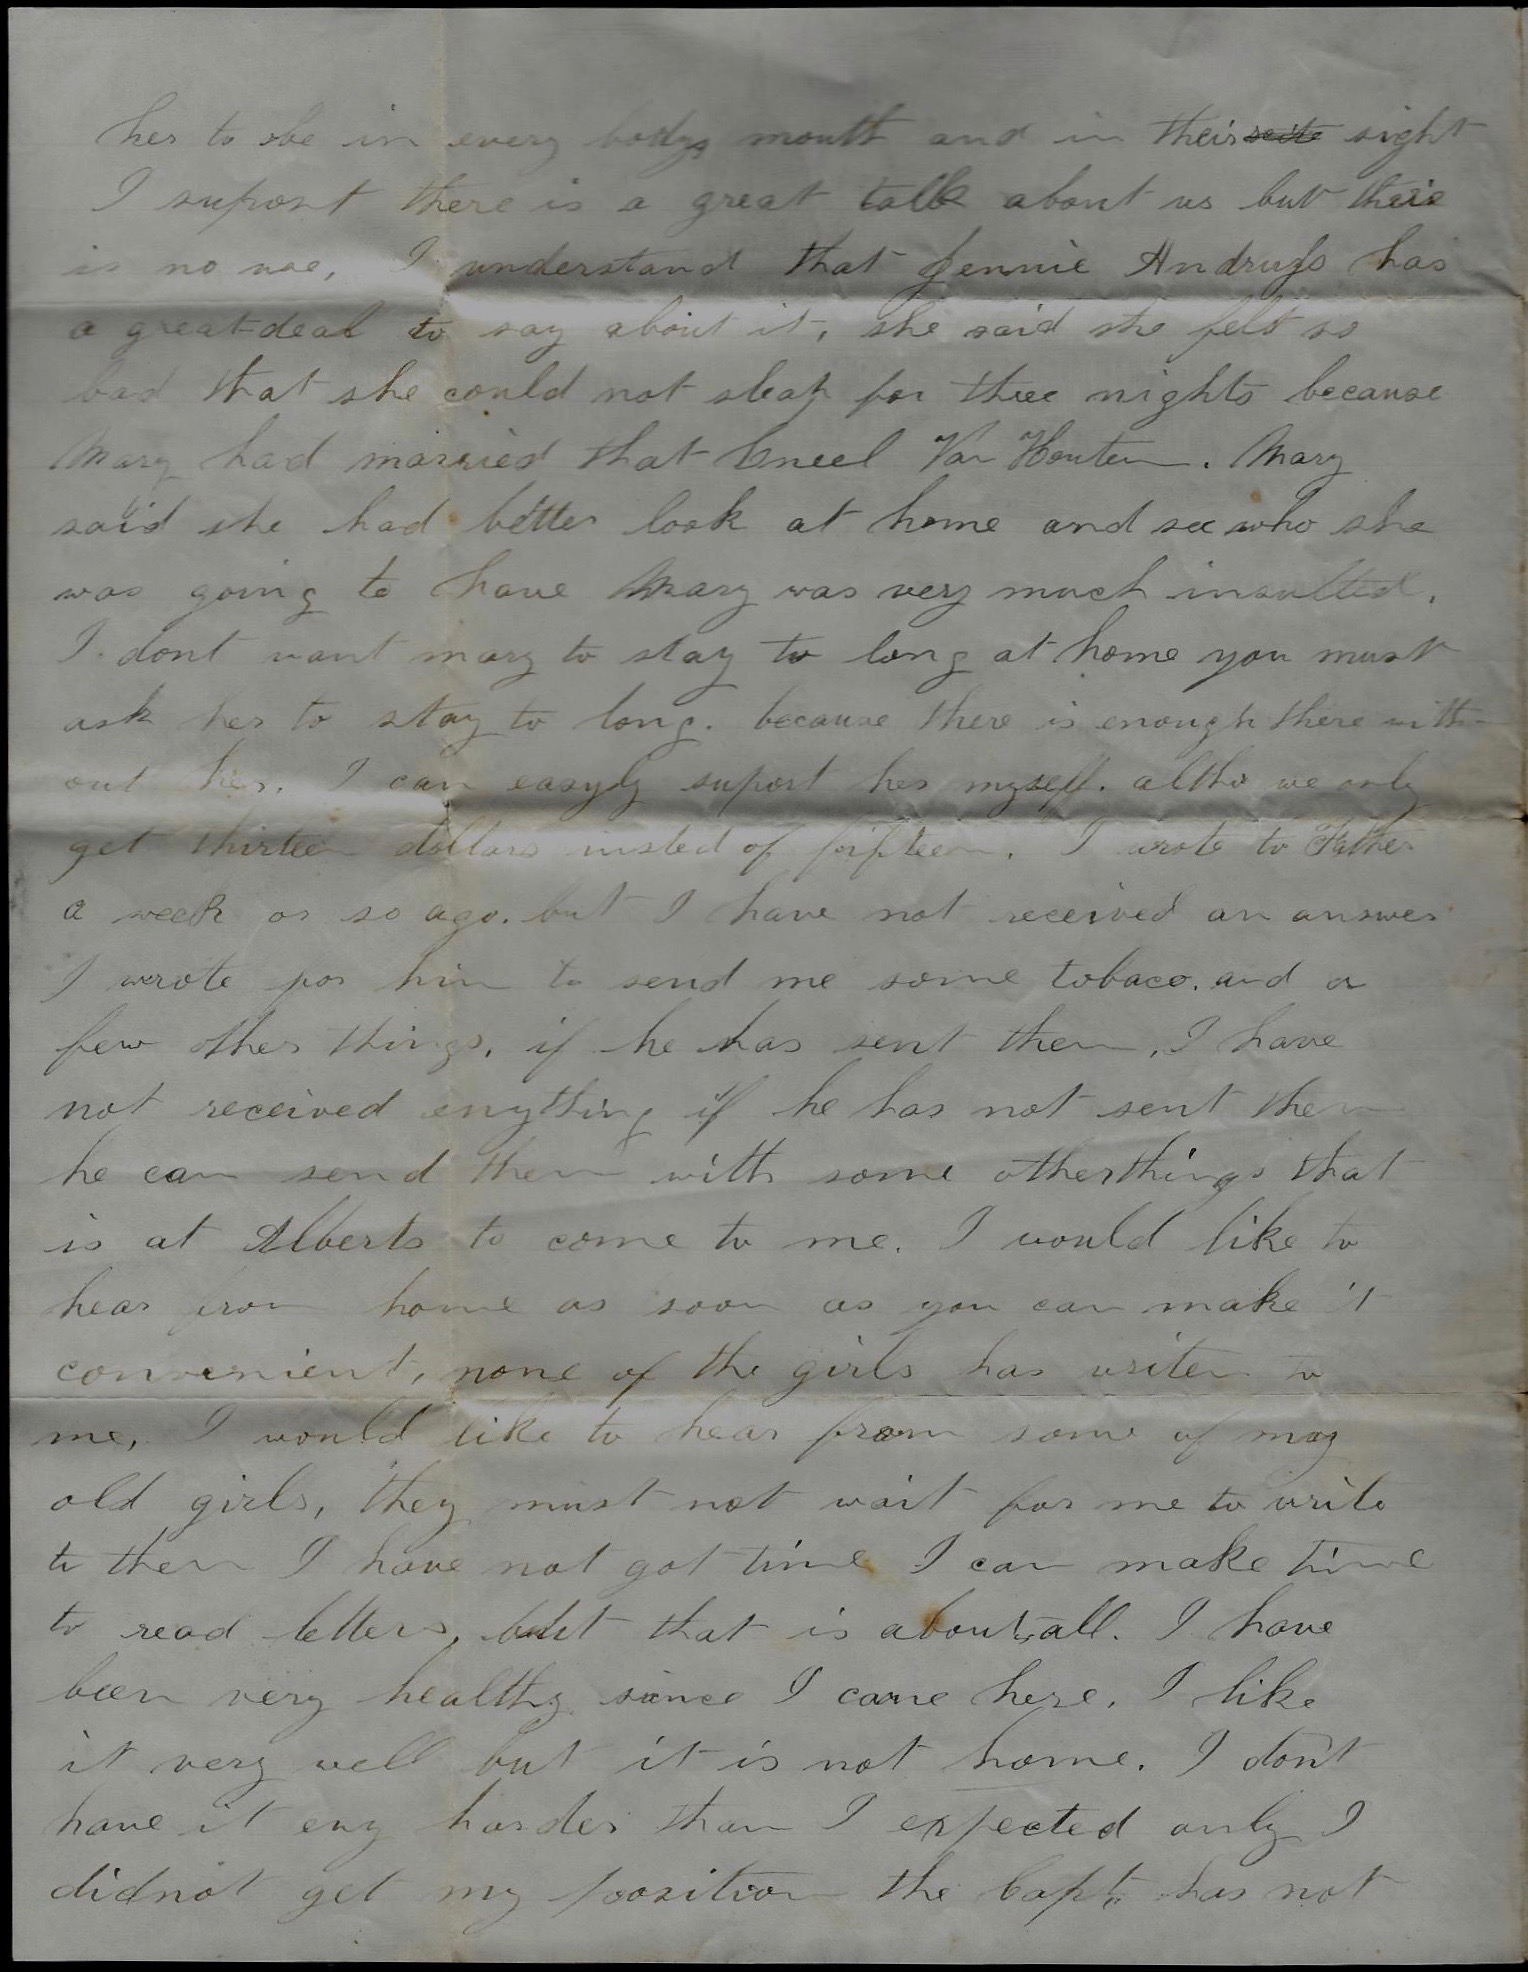 her to be in every bodys mouth and in their seite sight
I suposst there is a great talk about us but there
is no use, I understand that Jennie Andruss has
a great deal to say about it, she said she felt so
bad that she could not sleap for three nights because
Mary had married that Cneel Van Houten. Mary
said she had better look at home and see who she
was going to have Mary was very much insulted.
I dont want mary to stay to long at home you must
ask her to stay to long. because there is enough there with-
out her. I can easyly suport her myself. altho we only
get thirteen dollars insted of fifteen. I wrote to Father
a week or so ago. but I have not received an answer
I wrote for him to send me some tobaco. and a
few other things, if he has sent them, I have
not received enything if he has not sent them
he can send them with some other things that
is at Alberts to come to me. I would like to
hear from home as soon as you can make it
convenient, none of the girls has writen to
me, I would like to hear from some of my
old girls, they must not wait for me to write
to them I have not got time I can make time
to read letters, but that is about all. I have
been very healthy since I came here. I like
it very well but it is not home. I dont
have it eny harder than I expected only I
didnot get my position the Capt. has not